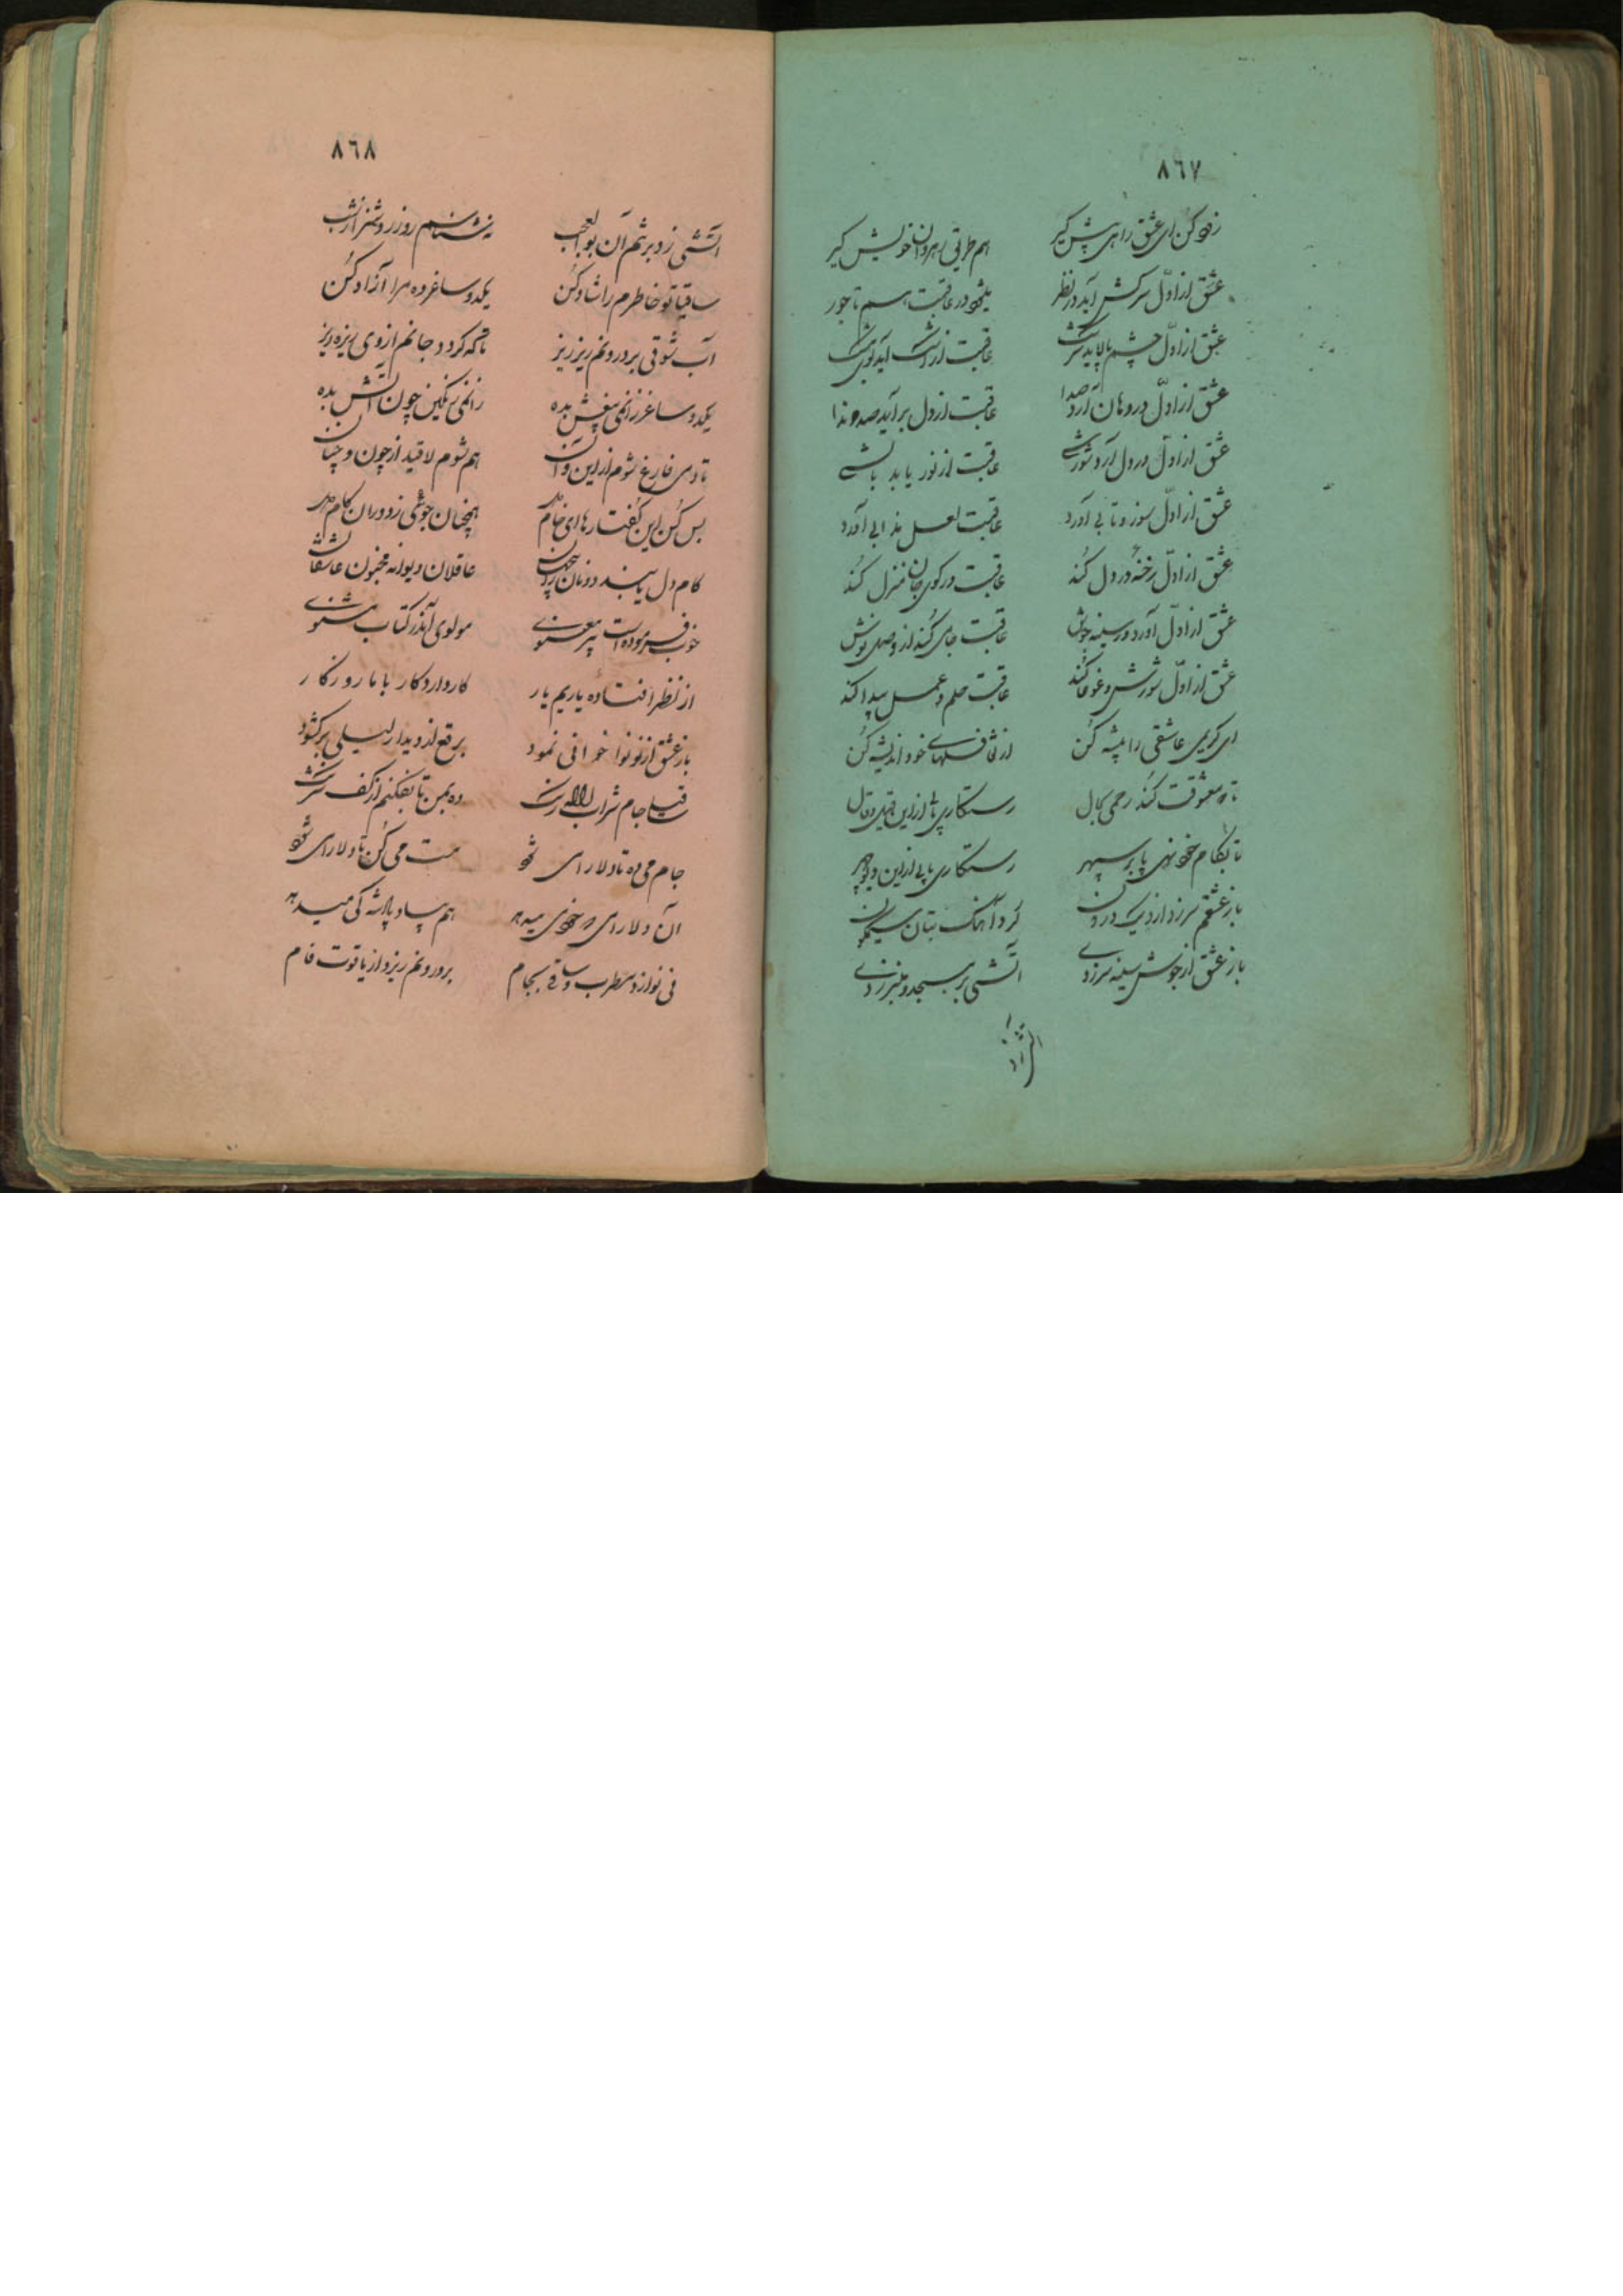 ٨٦٧
زود کن ای عشق راهی پیش گیر هم طریق رهروان خویش گیر
عشق از اوّل سرکش آید در نظر میشود در عاقبت هم تاجور
عشق از اوّل چشم پالاید سرشک عاقبت از رشک آید
عشق از اوّل در دهان آرد صدا عاقبت از دل برآید صد ندا
عشق از اوّل در دل آرد شورشی عاقبت از نور یابد بالشی
عشق از اوّل سوز و تابی آورد عاقبت لعل مذابی آورد
عشق از اوّل رخنه در دل کُند عاقبت در کوی جان منزل کُند
عشق از اوّل آورد در سینه جوش عاقبت جامی کُند از وصل نوش
عشق از اوّل شورش و غوغا کُند عاقبت حلم و عمل پیدا کند
ای کریمی عاشقی را پیشه کُن از نفسهای خود اندیشه کُن
تا که معشوقت کُند رحمی بحال رستگاری یابی از این قیل و قال
تا بکام خود نهی پا بر سپهر رستگاری یابی از این
باز عشقم سر زد از دیک درون کرد آهنک بتان سیمگون
باز عشق از جوش سینه سر زدی آتشی بر مسجد و منبر زدی
آتشی زد
٨٦٨
آتشی زد بر سَرم آن بوالعجب نه شناسم روز روشن را ز شب
ساقیا تو خاطرم را شاد کُن یکدو ساغر ده مرا آزاد کُن
آب شوقی بر درونم ریز ریز تا که کردد جانم از وی ریزه ریز
یکدو ساغر زان می بیغش بده زان می رنگین چون آتش بده
تا دمی فارغ شوم از این و آن هم شوم لاقید از چون و چنان
بس کُن این گفتارهای خام را همچنان جوئی ز دوران کام را
کام دل یابند دونان جهان عاقلان دیوانه مجنون عاشقان
خوب فرموده است پیر معنوی مولوی آندر کتاب مثنوی
از نظر افتاده یاریم یار کار دارد کار با ما روزکار
باز عشق از نو نوا خوانی نمود برقع از دیدار لیلی برکشود
ساقیا جام شراب لاله رنگ ده بمن تا بفکنم از کف شرنگ
جام می ده تا دلارای شود مست می کُن تا دلارای شود
آن دلارای که خود می میدهد هم بساد پادشه کی میدهد
نی نوازد مطرب و ساقی بجام بر درونم ریزد از یاقوت فام